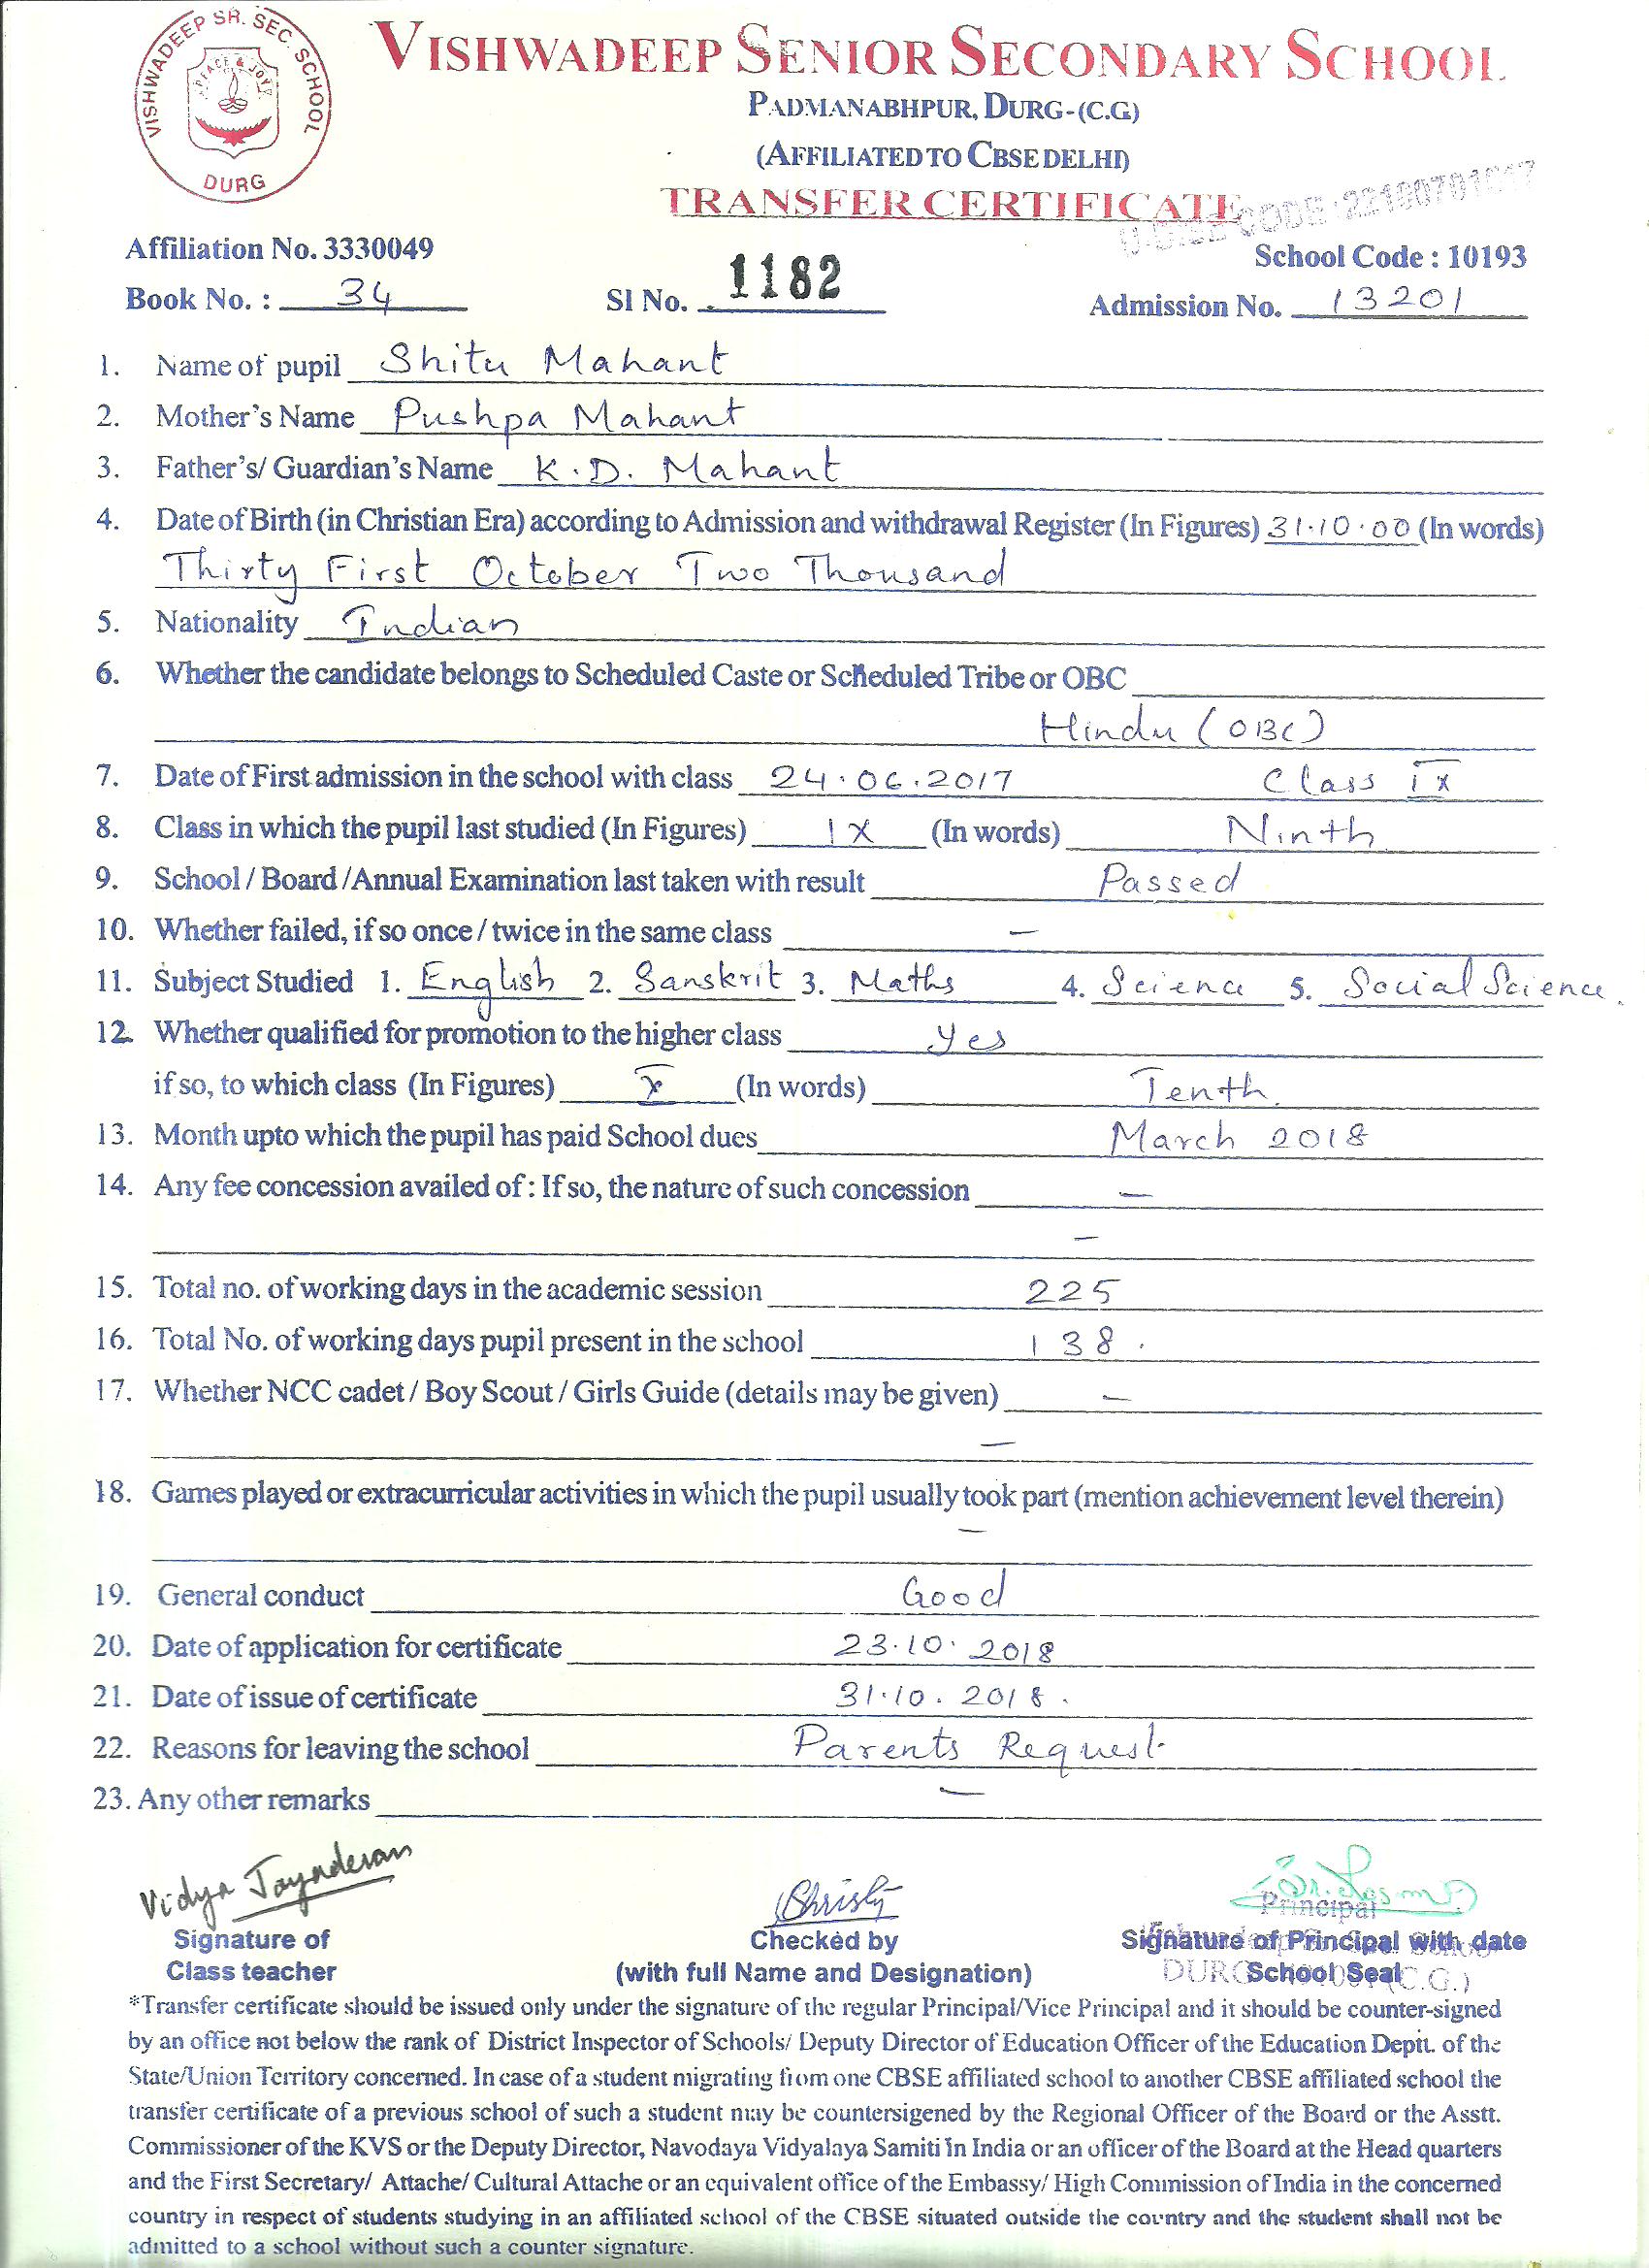 VISHWADEEP SR. SEC. SCHOOL
PEACE & JOY
DURG
VISHWADEEP SENIOR SECONDARY SCHOOL
PADMANABHPUR, DURG-(C.G.)
(AFFILIATED TO CBSE DELHI)
TRANSFER CERTIFICATE
CODE
Affiliation No. 3330049
School Code : 10193
Book No. : 34 Sl No. 1182 Admission No. 13201
1. Name of pupil Shitu Mahant
2. Mother's Name Pushpa Mahant
3. Father's/ Guardian's Name K.D. Mahant
4. Date of Birth (in Christian Era) according to Admission and withdrawal Register (In Figures) 31.10.00 (In words)
Thirty First October Two Thousand
5. Nationality Indian
6. Whether the candidate belongs to Scheduled Caste or Scheduled Tribe or OBC
Hindu (OBC)
7. Date of First admission in the school with class 24.06.2017 Class IX
8. Class in which the pupil last studied (In Figures) IX (In words) Ninth
9. School / Board /Annual Examination last taken with result Passed
10. Whether failed, if so once / twice in the same class –
11. Subject Studied 1. English 2. Sanskrit 3. Maths 4. Science 5. Social Science.
12. Whether qualified for promotion to the higher class Yes
if so, to which class (In Figures) X (In words) Tenth.
13. Month upto which the pupil has paid School dues March 2018
14. Any fee concession availed of : If so, the nature of such concession –
–
15. Total no. of working days in the academic session 225
16. Total No. of working days pupil present in the school 138.
17. Whether NCC cadet / Boy Scout / Girls Guide (details may be given) –
–
18. Games played or extracurricular activities in which the pupil usually took part (mention achievement level therein)
–
19. General conduct Good
20. Date of application for certificate 23.10.2018
21. Date of issue of certificate 31.10.2018.
22. Reasons for leaving the school Parents Request
23. Any other remarks –
Vidya Jayadevan
Christy
Principal
Signature of Checked by Signature of Principal with date
Class teacher (with full Name and Designation) School Seal
DURG (C.G.)
*Transfer certificate should be issued only under the signature of the regular Principal/Vice Principal and it should be counter-signed
by an office not below the rank of District Inspector of Schools/ Deputy Director of Education Officer of the Education Deptt. of the
State/Union Territory concerned. In case of a student migrating from one CBSE affiliated school to another CBSE affiliated school the
transfer certificate of a previous school of such a student may be countersigened by the Regional Officer of the Board or the Asstt.
Commissioner of the KVS or the Deputy Director, Navodaya Vidyalaya Samiti in India or an officer of the Board at the Head quarters
and the First Secretary/ Attache/ Cultural Attache or an equivalent office of the Embassy/ High Commission of India in the concerned
country in respect of students studying in an affiliated school of the CBSE situated outside the country and the student shall not be
admitted to a school without such a counter signature.